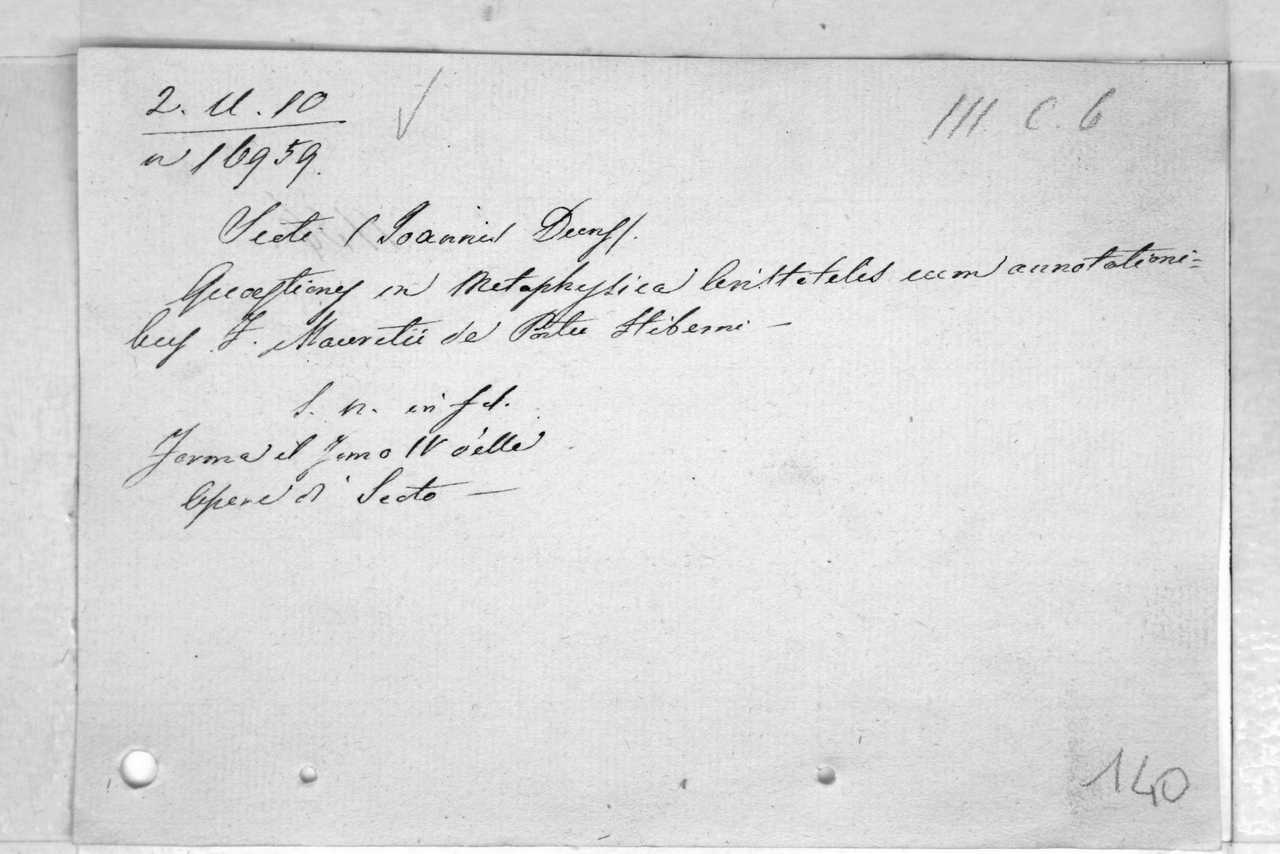 2. U. 10
III C. 6
n 16959.
Scoti (Joannis Duns).
Quaestiones in Metaphysica Aristotelis cum annotationi=
bus F. Mauritii de Portu Hiberni —
S. n. in fol.
Forma il Tomo IV delle
Opere di Scoto —
140